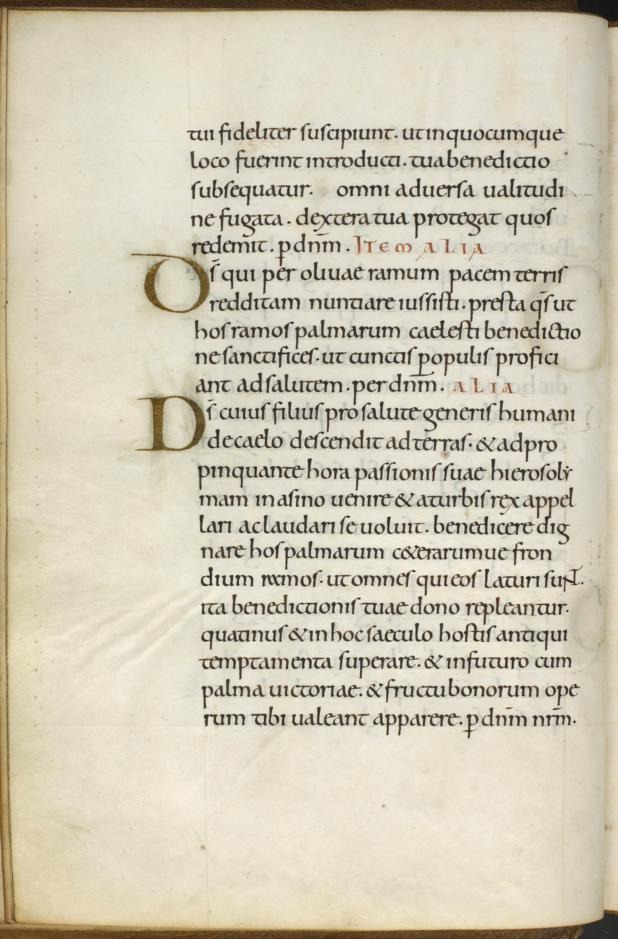 tui fideliter suscipiunt. ut in quocumque
loco fuerint introducti. tua benedictio
subsequatur. omni adversa ualitudi
ne fugata. dextera tua protegat quos
redemit. p̱ dn̄m. ITEM ALIA
Ds̄ qui per oliuae ramum pacem terris
redditam nuntiare iussisti. presta qs̄ ut
hos ramos palmarum caelesti benedictio
ne sanctifices. ut cunctis populis profici
ant ad salutem. per dn̄m. ALIA
Ds̄ cuius filius pro salute generis humani
de caelo descendit ad terras. & adpro
pinquante hora passionis suae hierosoly
mam in asino uenire & a turbis rex appel
lari ac laudari se uoluit. benedicere dig
nare hos palmarum c&erarumue fron
dium ramos. ut omnes qui eos laturi sunt.
ita benedictionis tuae dono repleantur.
quatinus & in hoc saeculo hostis antiqui
temptamenta superare. & in futuro cum
palma uictoriae. & fructu bonorum ope
rum tibi ualeant apparere. p̱ dn̄m nr̄m.